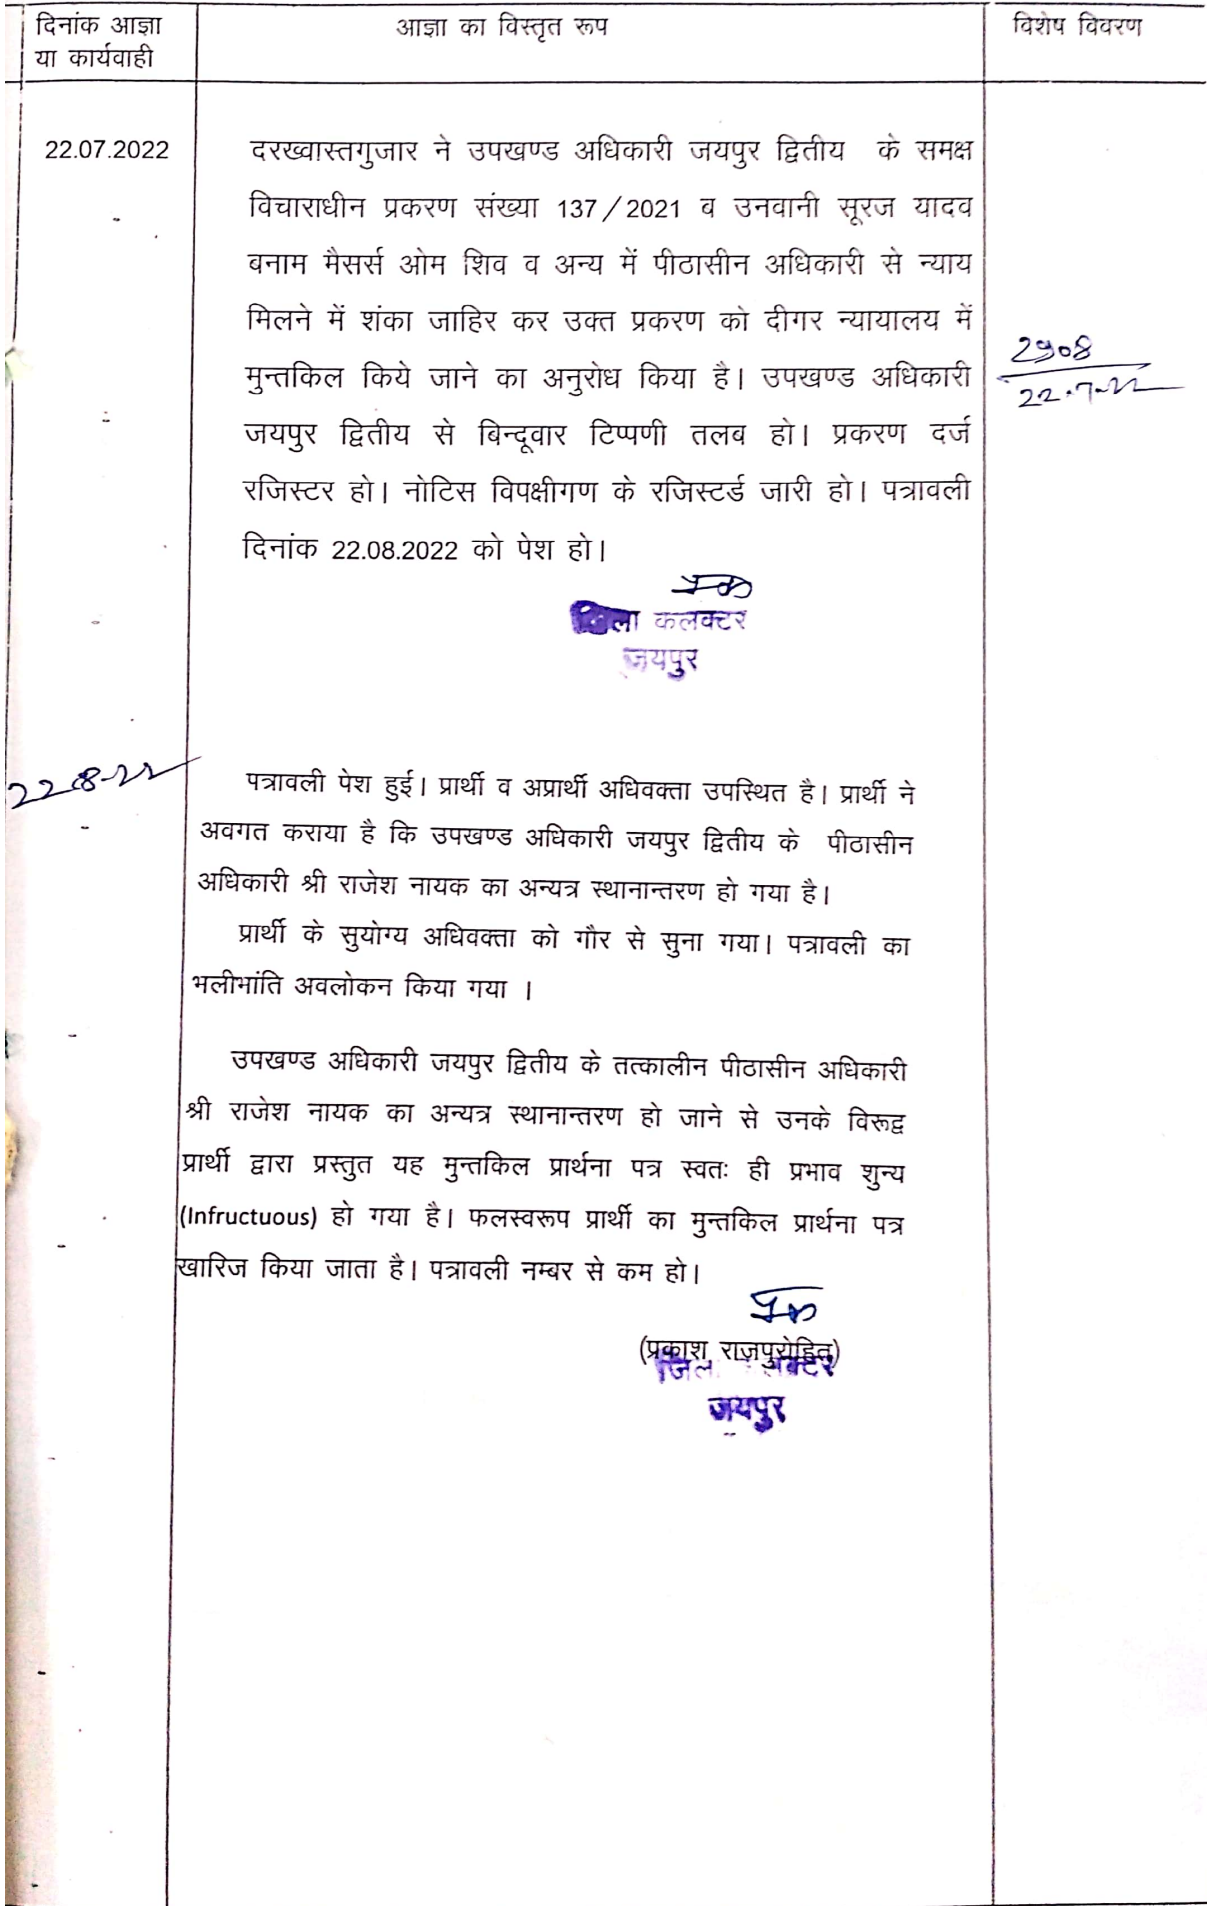 दिनांक आज्ञा
या कार्यवाही
आज्ञा का विस्तृत रूप
विशेष विवरण
22.07.2022
दरख्वास्तगुजार ने उपखण्ड अधिकारी जयपुर द्वितीय के समक्ष
विचाराधीन प्रकरण संख्या 137/2021 ब उनवानी सूरज यादव
बनाम मैसर्स ओम शिव व अन्य में पीठासीन अधिकारी से न्याय
मिलने में शंका जाहिर कर उक्त प्रकरण को दीगर न्यायालय में
मुन्तकिल किये जाने का अनुरोध किया है। उपखण्ड अधिकारी
जयपुर द्वितीय से बिन्दूवार टिप्पणी तलब हो। प्रकरण दर्ज
रजिस्टर हो। नोटिस विपक्षीगण के रजिस्टर्ड जारी हो। पत्रावली
दिनांक 22.08.2022 को पेश हो।
2908
22.7.22
कलक्टर
जयपुर
22-8-22
पत्रावली पेश हुई। प्रार्थी व अप्रार्थी अधिवक्ता उपस्थित है। प्रार्थी ने
अवगत कराया है कि उपखण्ड अधिकारी जयपुर द्वितीय के पीठासीन
अधिकारी श्री राजेश नायक का अन्यत्र स्थानान्तरण हो गया है।
प्रार्थी के सुयोग्य अधिवक्ता को गौर से सुना गया। पत्रावली का
भलीभांति अवलोकन किया गया ।
उपखण्ड अधिकारी जयपुर द्वितीय के तत्कालीन पीठासीन अधिकारी
श्री राजेश नायक का अन्यत्र स्थानान्तरण हो जाने से उनके विरूद्व
प्रार्थी द्वारा प्रस्तुत यह मुन्तकिल प्रार्थना पत्र स्वतः ही प्रभाव शुन्य
(Infructuous) हो गया है। फलस्वरूप प्रार्थी का मुन्तकिल प्रार्थना पत्र
खारिज किया जाता है। पत्रावली नम्बर से कम हो।
(प्रकाश राजपुरोहित)
जयपुर